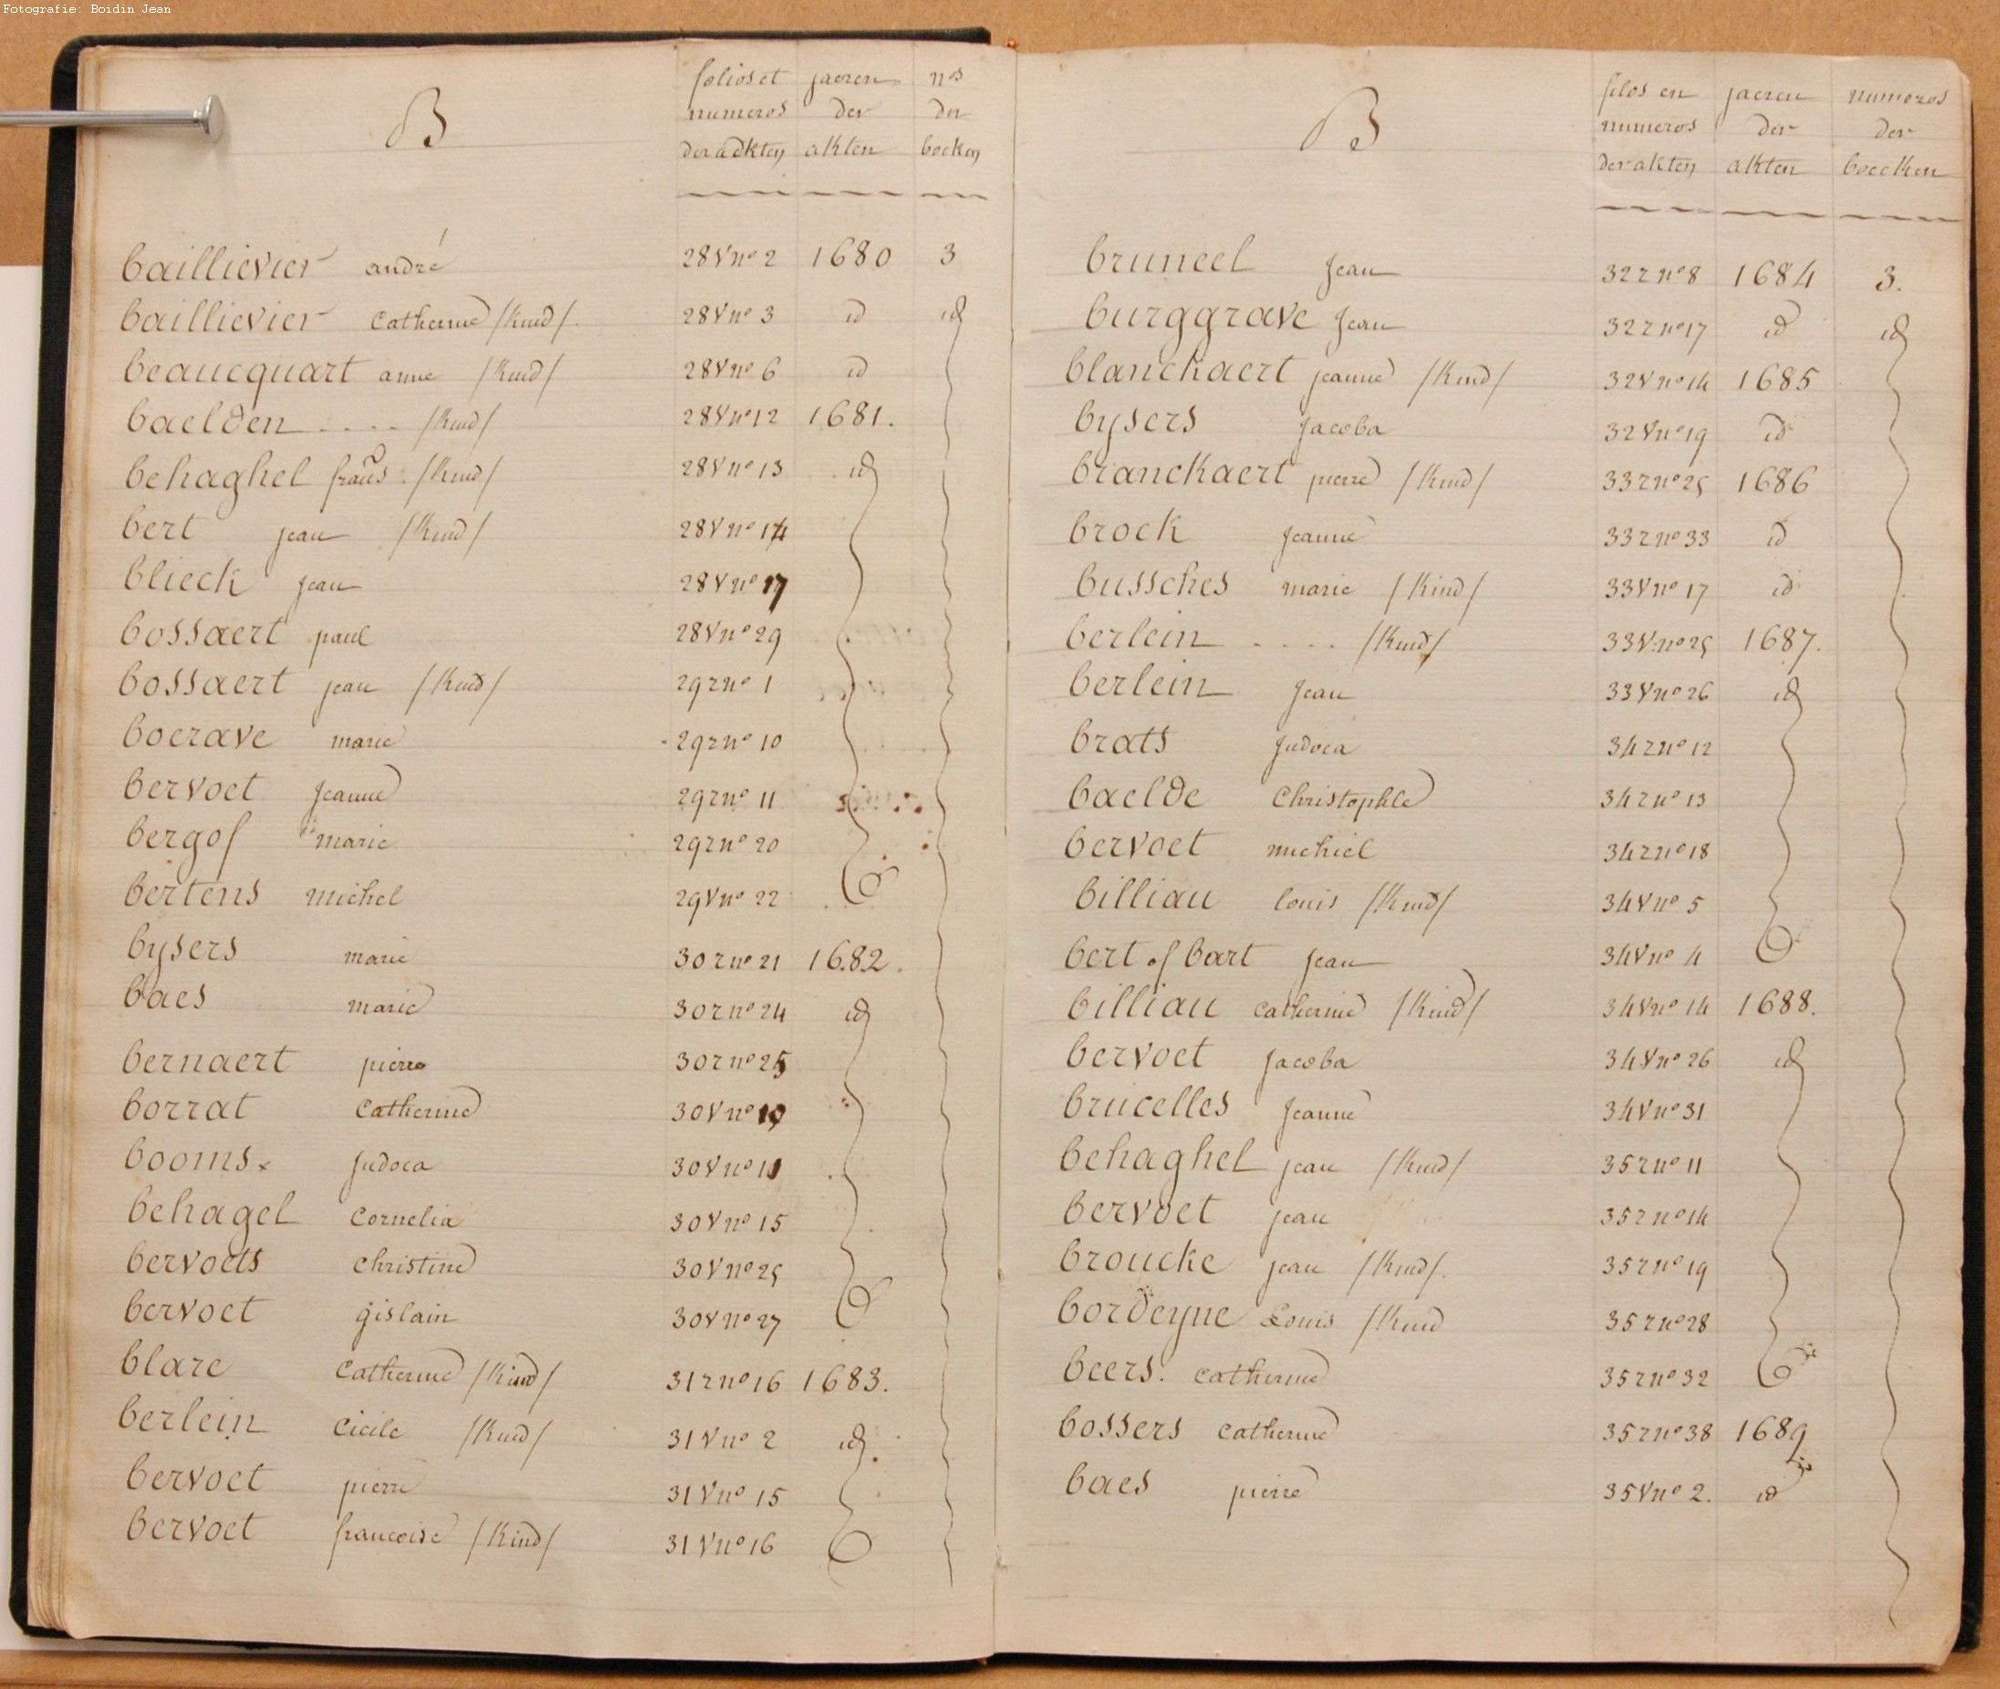 Fotografie: Boidin Jean
B
folios et jaeren nos
numeros der der
der adkten akten boeken
baillievier andré 28 V no 2 1680 3
baillievier catherine /kind/. 28 V no 3 id id
beaucquart anne /kind/ 28 V no 6 id
baelden .... /kind/ 28 V no 12 1681.
behaghel frans /kind/ 28 V no 13 id
bert jean /kind/ 28 V no 14
blieck jean 28 V no 17
bossaert paul 28 V no 29
bossaert jean /kind/ 29 r no 1
boerave marie 29 r no 10
bervoet jeanne 29 r no 11
bergof marie 29 r no 20
bertens michel 29 V no 22
bysers marie 30 r no 21 1682.
baes marie 30 r no 24 id
bernaert pierre 30 r no 25
borrat catherine 30 V no 10
booms judoca 30 V no 11
behagel cornelia 30 V no 15
bervoets christine 30 V no 25
bervoet gislain 30 V no 27
blare catherine /kind/ 31 r no 16 1683.
berlein cicile /kind/ 31 V no 2 id.
bervoet pierre 31 V no 15
bervoet francoise /kind/ 31 V no 16
B
filos en jaeren numeros
numeros der der
der akten akten boecken
bruneel jean 32 r no 8 1684 3.
burggrave jean 32 r no 17 id id
blanckaert jeanne /kind/ 32 V no 14 1685
bysers jacoba 32 V no 19 id
branckaert pierre /kind/ 33 r no 25 1686
brock jeanne 33 r no 33 id
bussches marie /kind/ 33 V no 17 id
berlein .... /kind/ 33 V no 25 1687.
berlein jean 33 V no 26 id
brats judoca 34 r no 12
baelde christophle 34 r no 13
bervoet michiel 34 r no 18
billiau louis /kind/ 34 V no 5
bert of bart jean 34 V no 4
billiau catherine /kind/ 34 V no 14 1688.
bervoet jacoba 34 V no 26 id
brucelles jeanne 34 V no 31
behaghel jean /kind/ 35 r no 11
bervoet jean 35 r no 14
broucke jean /kind/. 35 r no 19
bordeyne Louis /kind 35 r no 28
beers. catherine 35 r no 32
bossers catherine 35 r no 38 1689
baes pierre 35 V no 2. id